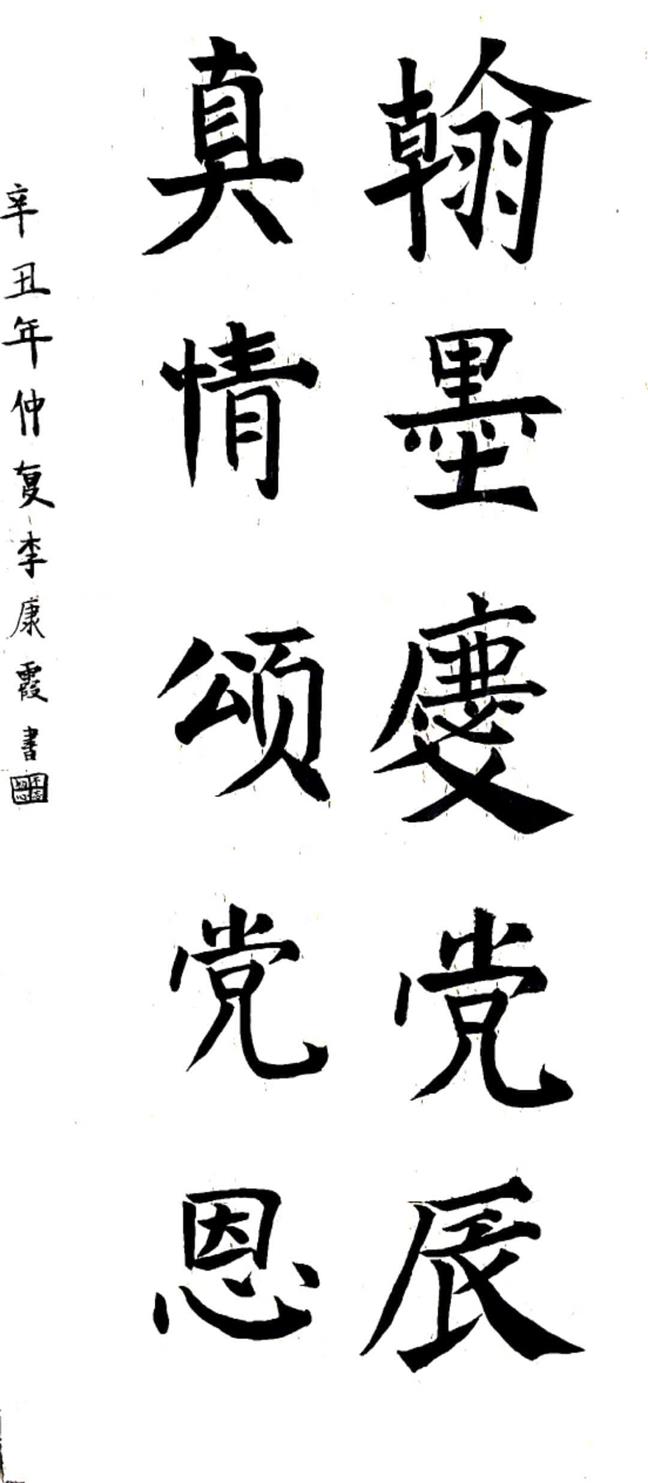 翰墨慶党辰
真情颂党恩
辛丑年仲夏李康霞書